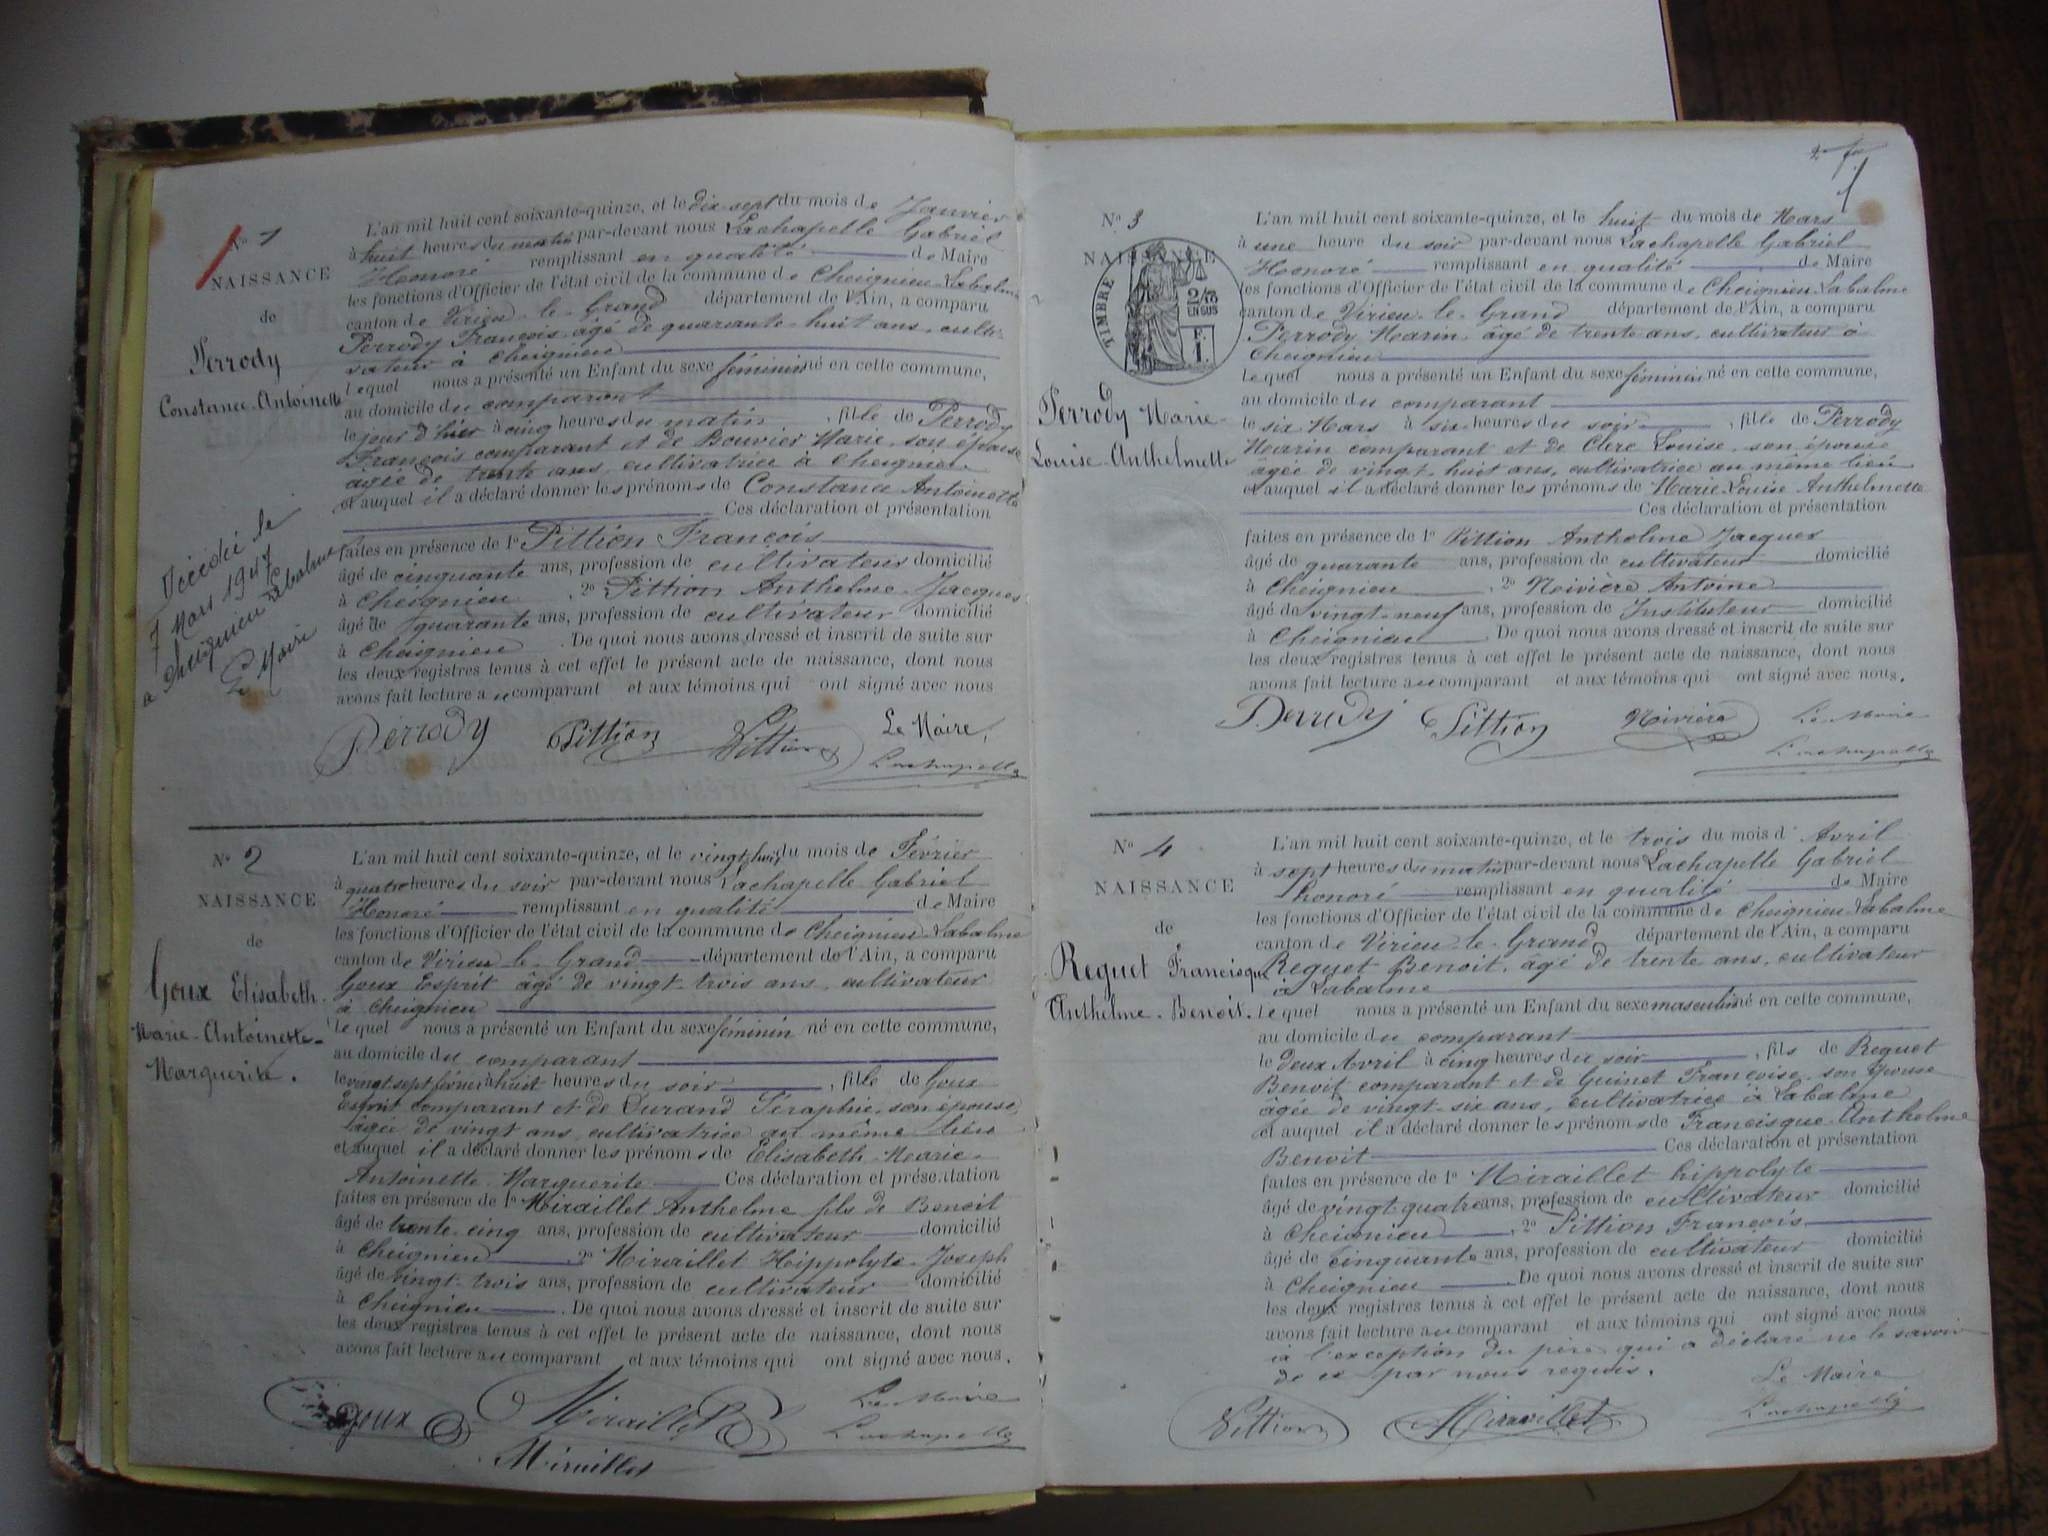 No 1
NAISSANCE
de
Perrody
Constance-Antoinette
Décédée le
7 Mars 1947
a Cheignieu Labalme
Le Maire
L'an mil huit cent soixante-quinze, et le dix-sept du mois de Janvier
à huit heures du matin par-devant nous Lachapelle Gabriel
Honoré remplissant en qualité de Maire
les fonctions d'Officier de l'état civil de la commune de Cheignieu-Labalme
canton de Virieu-le-Grand département de l'Ain, a comparu
Perrody François âgé de quarante-huit ans, culti-
vateur à Cheignieu
Lequel nous a présenté un Enfant du sexe féminin né en cette commune,
au domicile du comparant
le jour d'hier à cinq heures du matin, fille de Perrody
François comparant et de Bouvier Marie, son épouse
agée de trente ans, cultivatrice à Cheignieu
et auquel il a déclaré donner les prénoms de Constance Antoinette
Ces déclaration et présentation
faites en présence de 1° Pittion François
âgé de cinquante ans, profession de cultivateur domicilié
à Cheignieu, 2° Pittion Anthelme Jacques
âgé de quarante ans, profession de cultivateur domicilié
à Cheignieu. De quoi nous avons dressé et inscrit de suite sur
les deux registres tenus à cet effet le présent acte de naissance, dont nous
avons fait lecture au comparant et aux témoins qui ont signé avec nous
Perrody Pittion Pittion Le Maire,
Lachapelle
No 2
NAISSANCE
de
Goux Elisabeth-
Marie-Antoinette-
Marguerite.
L'an mil huit cent soixante-quinze, et le vingt-huit du mois de Février
à quatre heures du soir par-devant nous Lachapelle Gabriel
Honoré remplissant en qualité de Maire
les fonctions d'Officier de l'état civil de la commune de Cheignieu-Labalme
canton de Virieu-le-Grand département de l'Ain, a comparu
Goux Esprit âgé de vingt-trois ans, cultivateur
à Cheignieu
Lequel nous a présenté un Enfant du sexe féminin né en cette commune,
au domicile du comparant
le vingt-sept février à huit heures du soir, fille de Goux
Esprit comparant et de Durand Séraphie, son épouse,
âgée de vingt ans, cultivatrice au même lieu
et auquel il a déclaré donner les prénoms de Elisabeth-Marie-
Antoinette-Marguerite Ces déclaration et présentation
faites en présence de 1° Miraillet Anthelme fils de Benoit
âgé de trente-cinq ans, profession de cultivateur domicilié
à Cheignieu, 2° Miraillet Hippolyte-Joseph
âgé de vingt-trois ans, profession de cultivateur domicilié
à Cheignieu. De quoi nous avons dressé et inscrit de suite sur
les deux registres tenus à cet effet le présent acte de naissance, dont nous
avons fait lecture au comparant et aux témoins qui ont signé avec nous.
Goux Miraillet Le Maire
Miraillet Lachapelle
1
No 3
NAISSANCE
TIMBRE
2/10
EN SUS
F.
1.
Perrody Marie-
Louise-Anthelmette
L'an mil huit cent soixante-quinze, et le huit du mois de Mars
à une heure du soir par-devant nous Lachapelle Gabriel
Honoré remplissant en qualité de Maire
les fonctions d'Officier de l'état civil de la commune de Cheignieu-Labalme
canton de Virieu-le-Grand département de l'Ain, a comparu
Perrody Marin, âgé de trente ans, cultivateur à
Cheignieu
Lequel nous a présenté un Enfant du sexe féminin né en cette commune,
au domicile du comparant
le six Mars à six heures du soir, fille de Perrody
Marin comparant et de Clerc Louise, son épouse
âgée de vingt-huit ans, cultivatrice au même lieu
et auquel il a déclaré donner les prénoms de Marie Louise Anthelmette
Ces déclaration et présentation
faites en présence de 1° Pittion Anthelme Jacques
âgé de quarante ans, profession de cultivateur domicilié
à Cheignieu, 2° Rivière Antoine
âgé de vingt-neuf ans, profession de Instituteur domicilié
à Cheignieu. De quoi nous avons dressé et inscrit de suite sur
les deux registres tenus à cet effet le présent acte de naissance, dont nous
avons fait lecture au comparant et aux témoins qui ont signé avec nous.
Perrody Pittion Rivière Le Maire
Lachapelle
No 4
NAISSANCE
de
Reguet Francisque
Anthelme-Benoit.
L'an mil huit cent soixante-quinze, et le trois du mois d'Avril
à sept heures du matin par-devant nous Lachapelle Gabriel
honoré remplissant en qualité de Maire
les fonctions d'Officier de l'état civil de la commune de Cheignieu-Labalme
canton de Virieu-le-Grand département de l'Ain, a comparu
Reguet Benoit, âgé de trente ans, cultivateur
à Labalme
Lequel nous a présenté un Enfant du sexe masculin né en cette commune,
au domicile du comparant
le deux Avril à cinq heures du soir, fils de Reguet
Benoit comparant et de Guinet Françoise son épouse
âgée de vingt-six ans, cultivatrice à Labalme
et auquel il a déclaré donner les prénoms de Francisque-Anthelme
Benoit Ces déclaration et présentation
faites en présence de 1° Miraillet hippolyte
âgé de vingt-quatre ans, profession de cultivateur domicilié
à Cheignieu, 2° Pittion François
âgé de cinquante ans, profession de cultivateur domicilié
à Cheignieu. De quoi nous avons dressé et inscrit de suite sur
les deux registres tenus à cet effet le présent acte de naissance, dont nous
avons fait lecture au comparant et aux témoins qui ont signé avec nous
à l'exception du père qui a déclaré ne le savoir
de ce par nous requis.
Le Maire
Pittion Miraillet Lachapelle